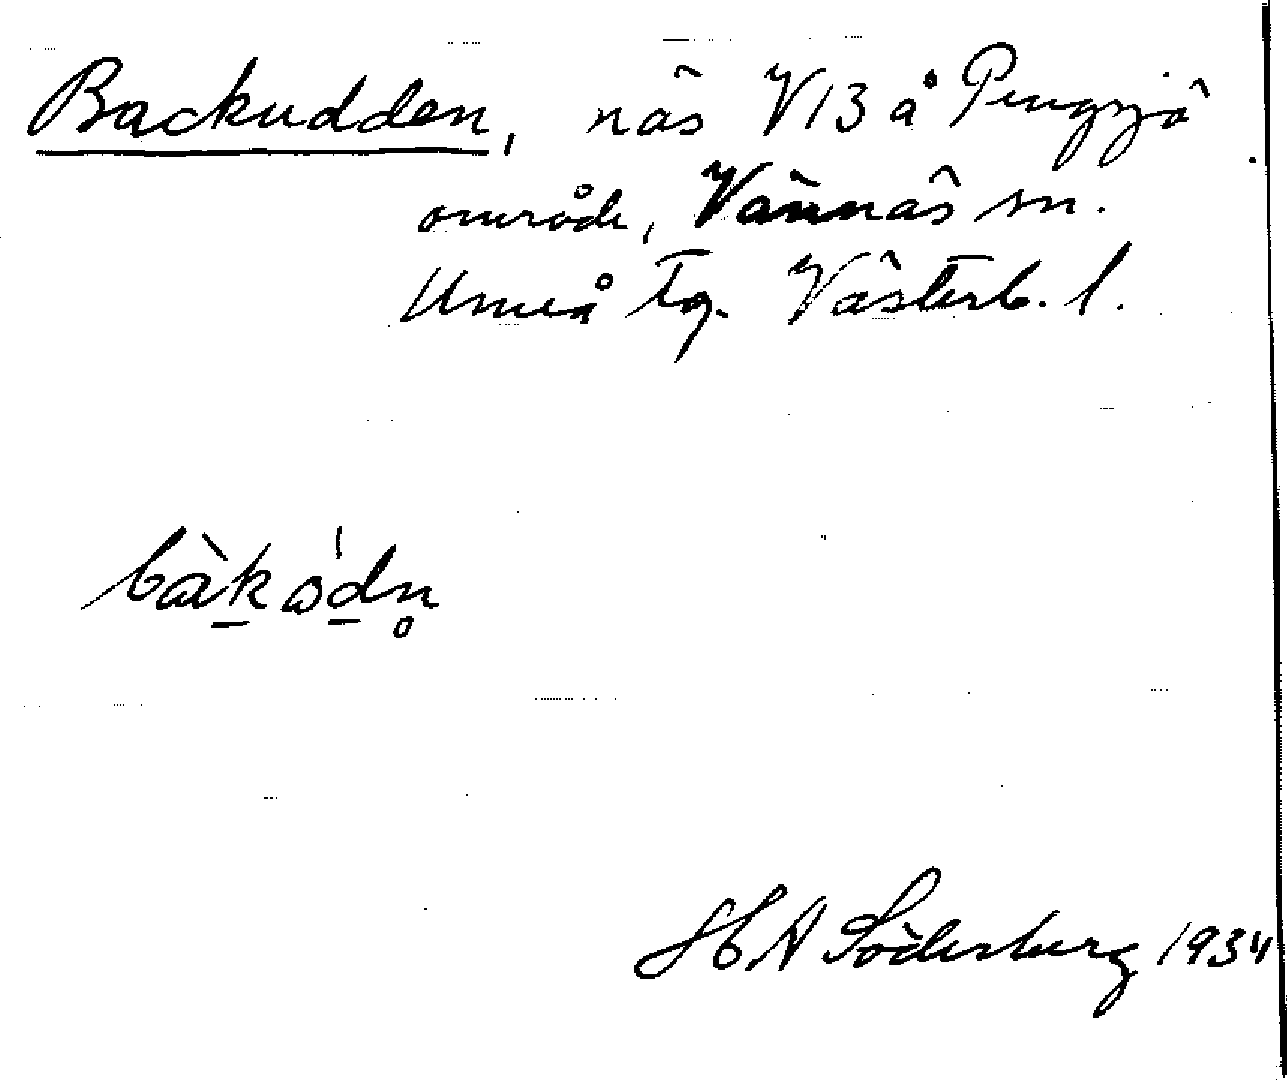 Backudden, näs V13 å Pengsjö
område, Vännäs sn.
Umeå tg. Västerb. l.
bàkọ̀dn̥
H A Söderberg 1934